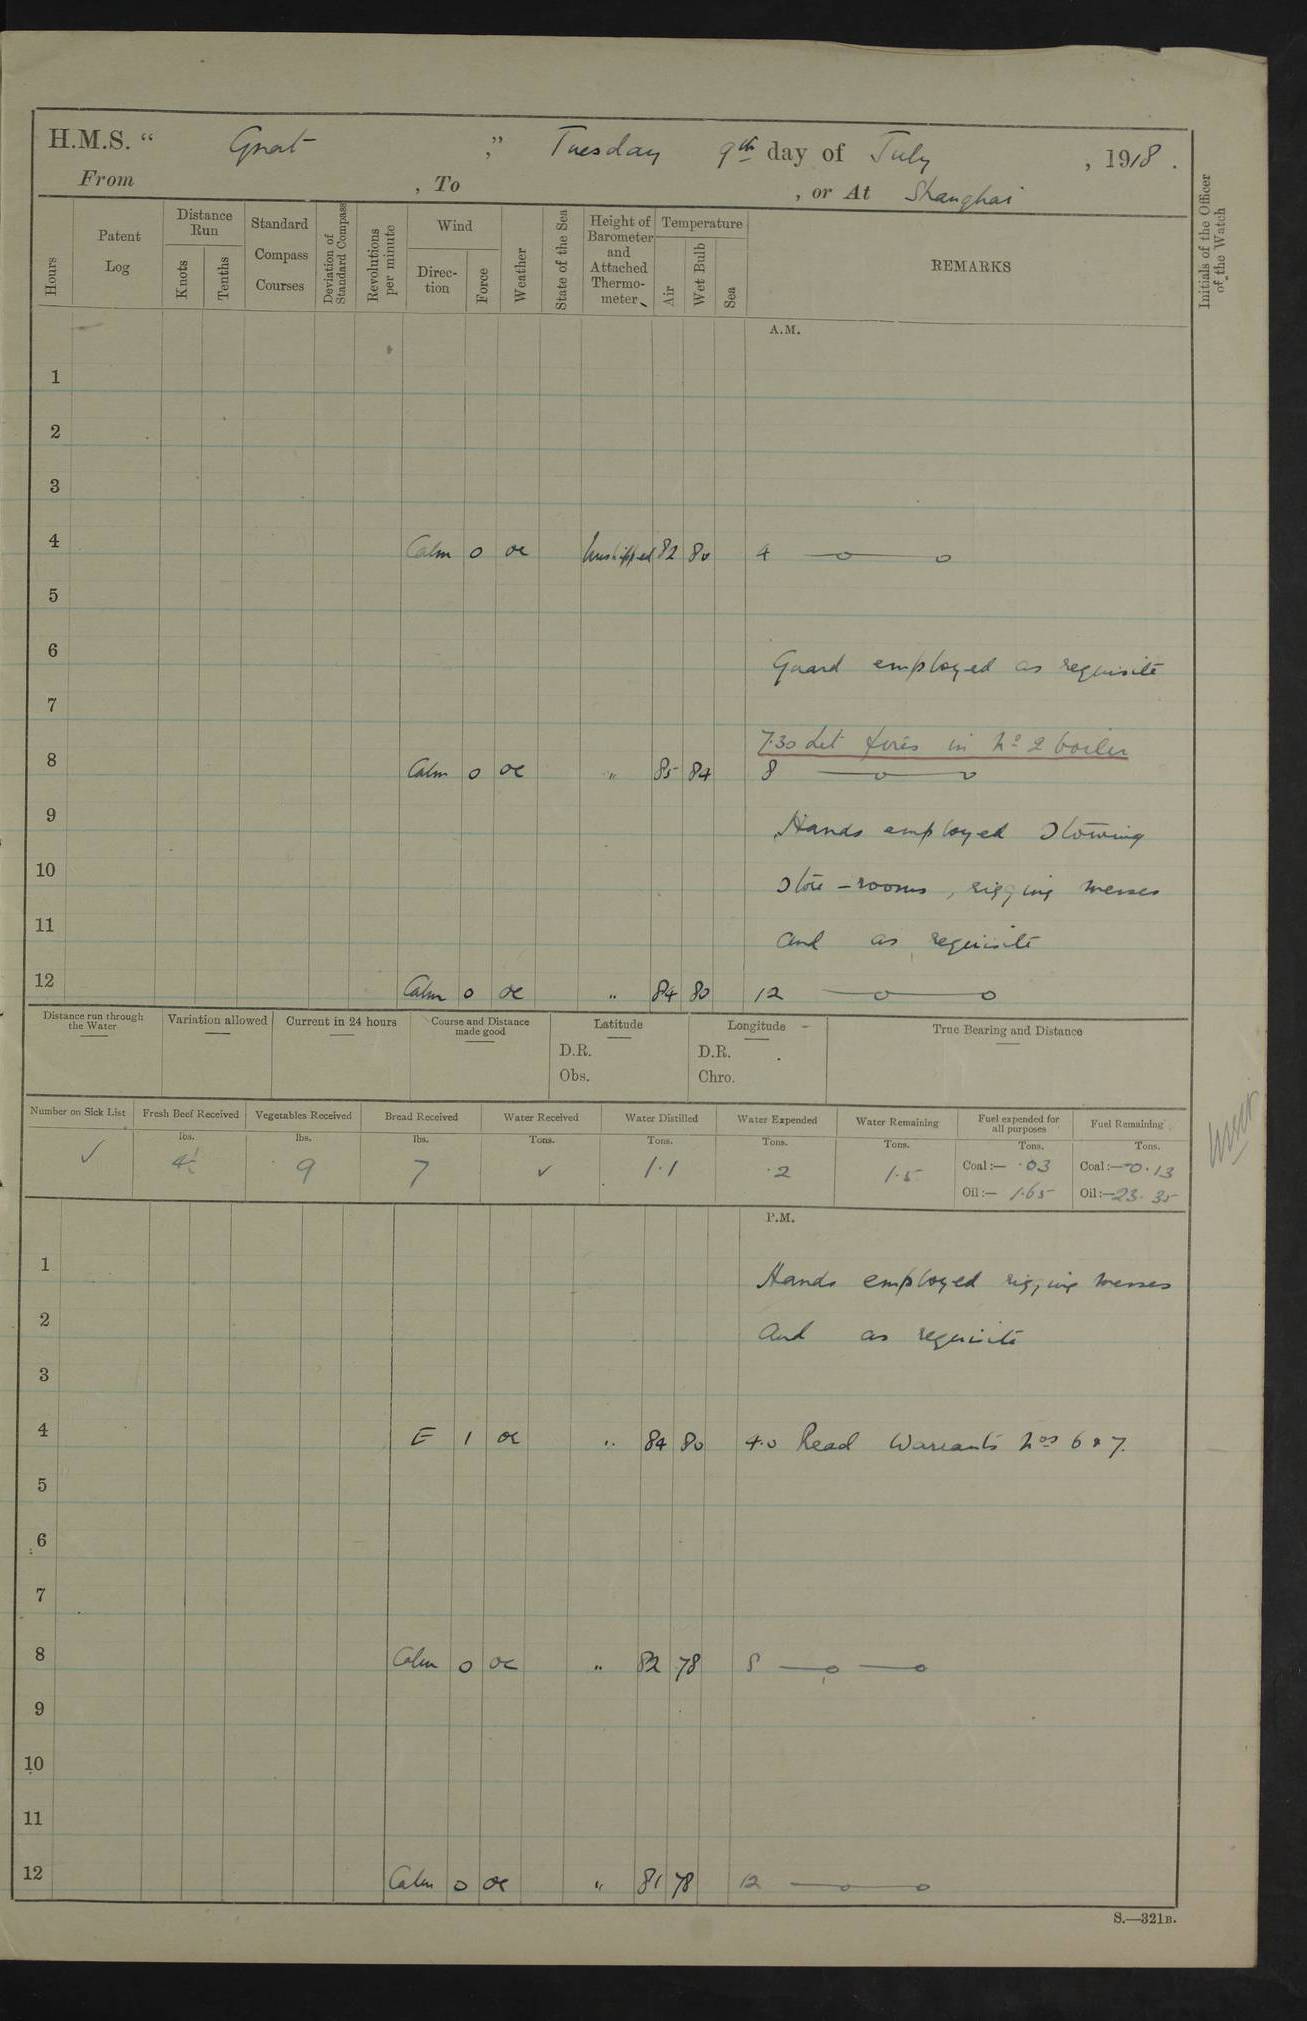 H.M.S. “ Gnat ,” Tuesday 9th day of July , 1918 .
From , To , or At Shanghai
Hours
Patent Log
Distance Run
Knots
Tenths
Standard Compass Courses
Deviation of Standard Compass
Revolutions per minute
Wind
Direc-tion
Force
Weather
State of the Sea
Height of Barometer and Attached Thermo-meter
Temperature
Air
Wet Bulb
Sea
REMARKS
Initials of the Officer of the Watch
A.M.
1
2
3
4 Calm 0 oc Unshipped 82 80 4 —o— o
5
6 Guard employed as requisite
7
7.30 Let fires in No 2 boiler
8 Calm 0 oc " 85 84 8 —o— o
9 Hands employed stowing
10 store-rooms, rigging messes
11 and as requisite
12 Calm 0 oc " 84 80 12 —o— o
Distance run through the Water
Variation allowed
Current in 24 hours
Course and Distance made good
Latitude
D.R.
Obs.
Longitude
D.R.
Chro.
True Bearing and Distance
Number on Sick List
Fresh Beef Received
Vegetables Received
Bread Received
Water Received
Water Distilled
Water Expended
Water Remaining
Fuel expended for all purposes
Fuel Remaining
lbs. lbs. lbs. Tons. Tons. Tons. Tons. Tons. Tons.
✓ 4½ 9 7 ✓ 1.1 .2 1.5 Coal:— .03 Coal:— 0.13
Oil:— 1.65 Oil:— 23.35
P.M.
1 Hands employed rigging messes
2 and as requisite
3
4 E 1 oc " 84 80 4.0 Read Warrants Nos 6 & 7.
5
6
7
8 Calm 0 oc " 82 78 8 —o —o
9
10
11
12 Calm 0 oc " 81 78 12 —o— o
S.—321B.